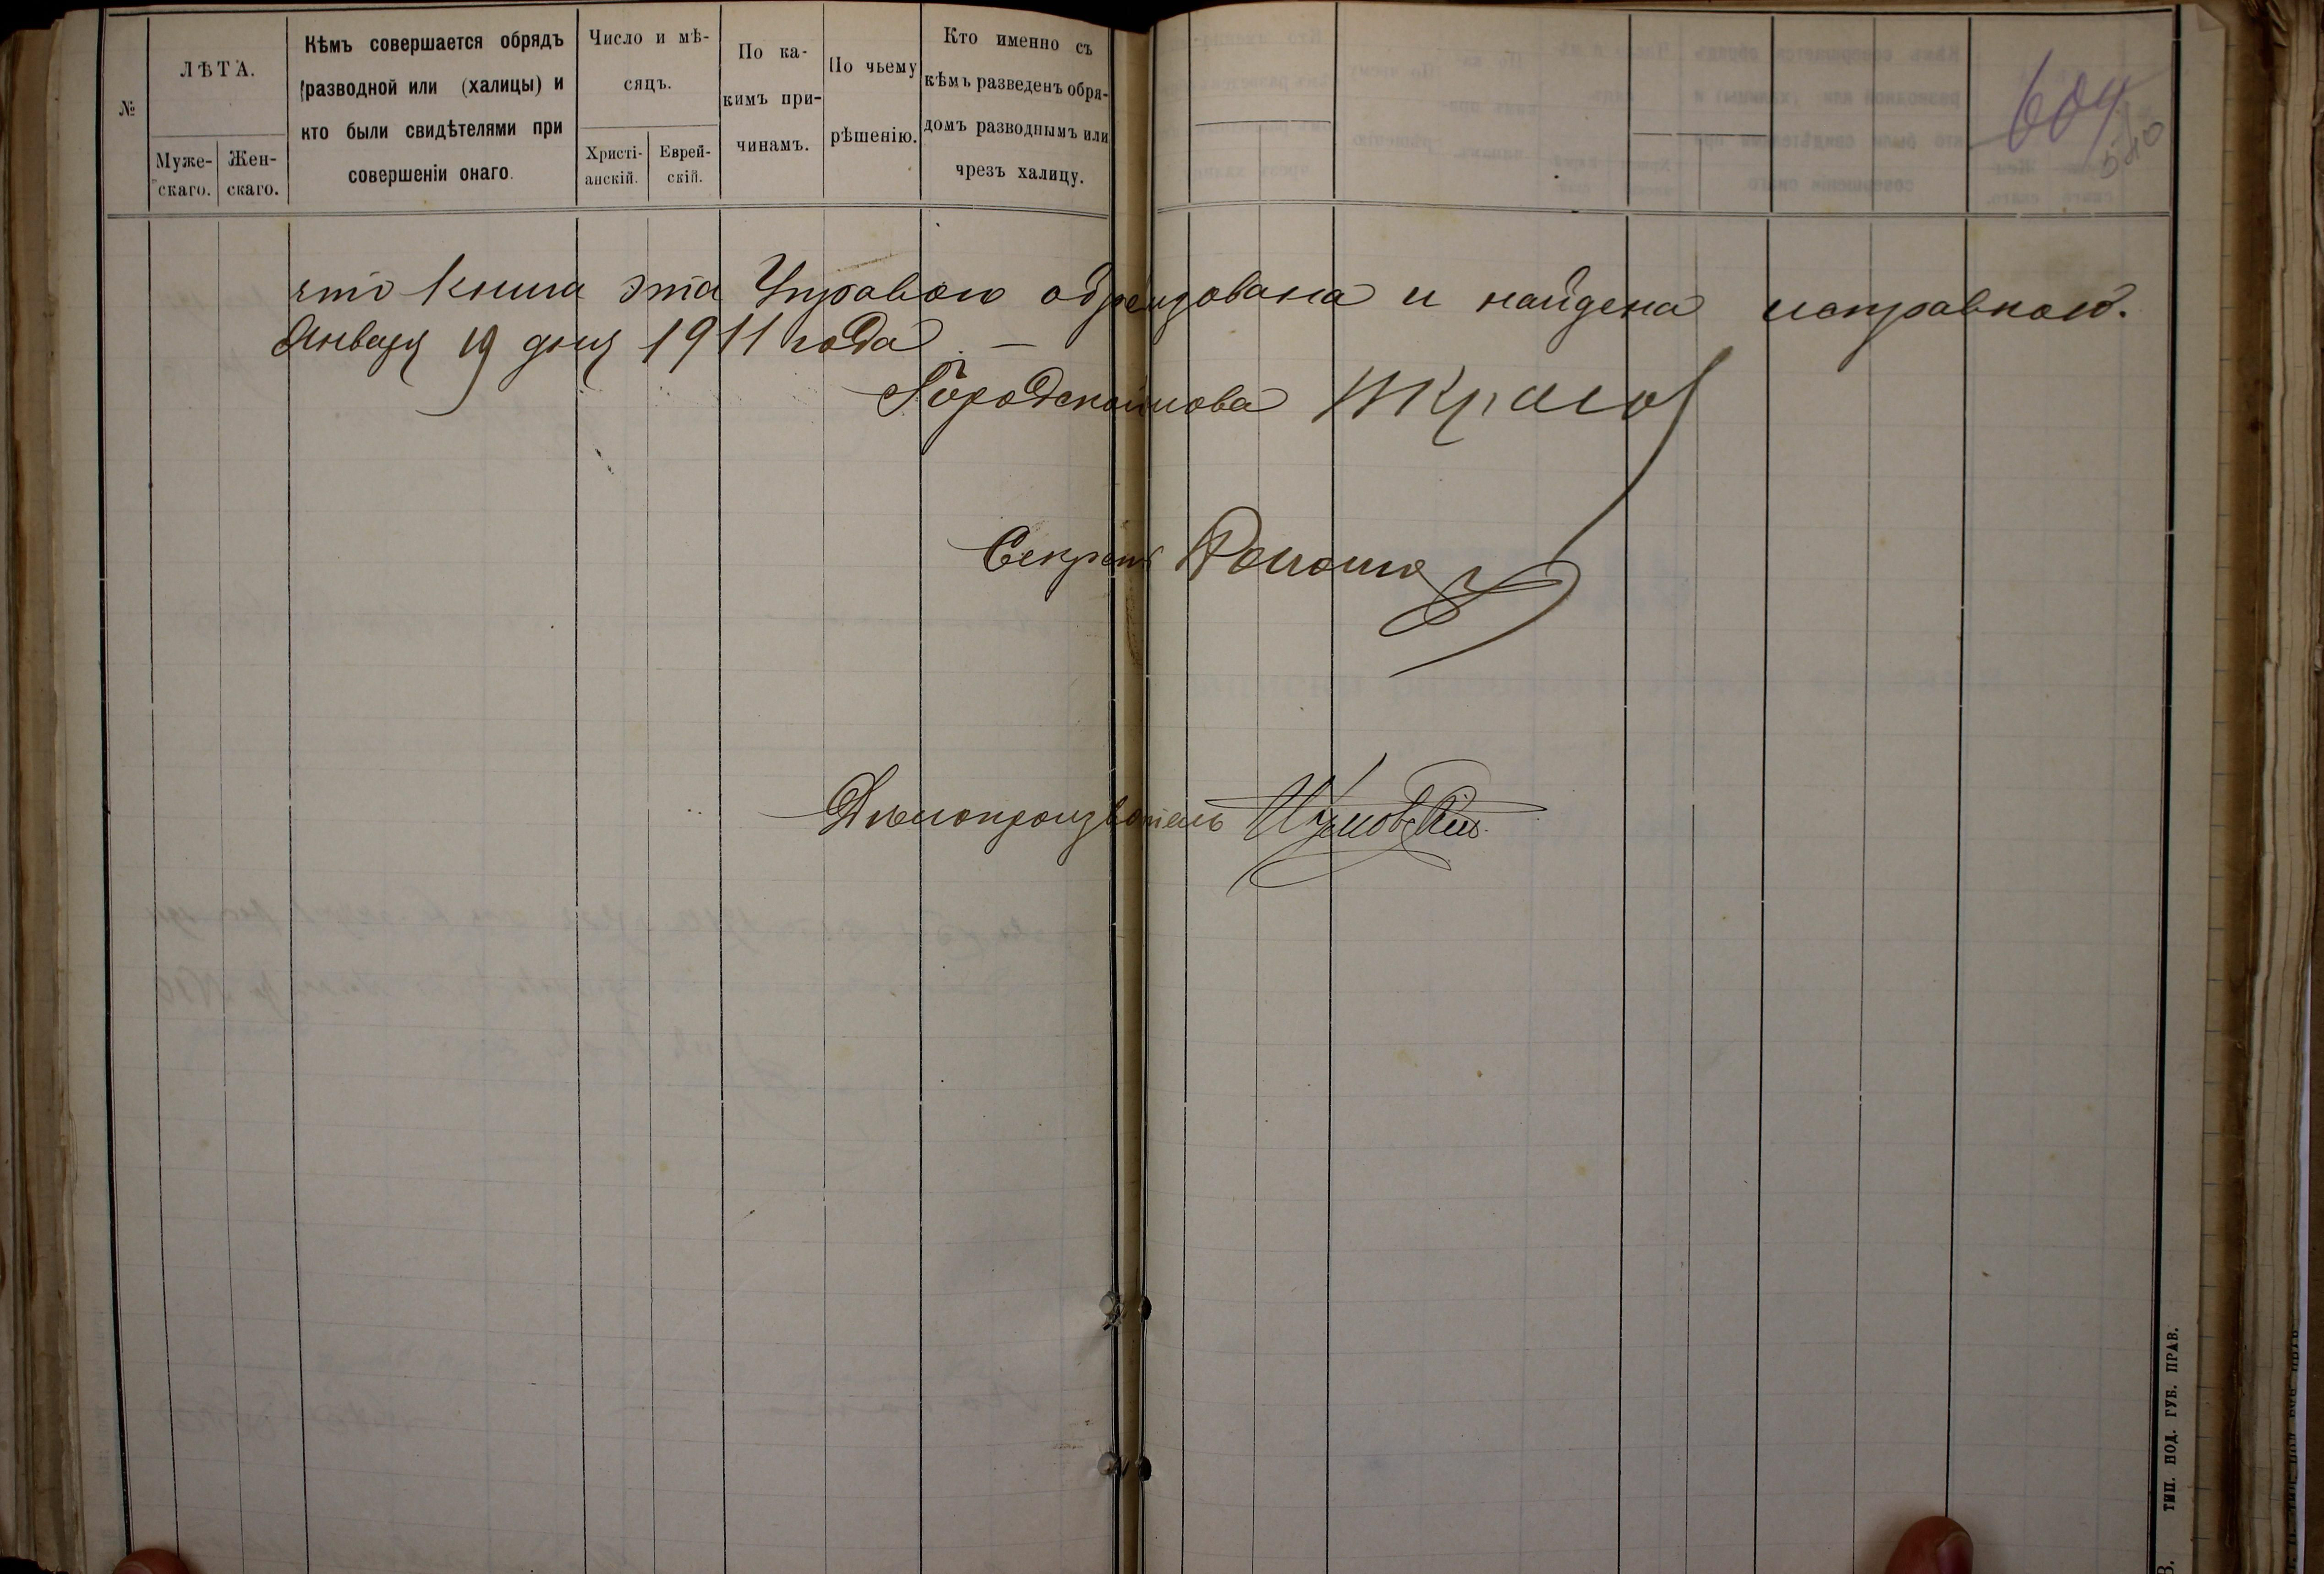 №
ЛѢТА.
Муже-
скаго.
Жен-
скаго.
Кѣмъ совершается обрядъ
(разводной или (халицы) и
кто были свидѣтелями при
совершеніи онаго.
Число и мѣ-
сяцъ.
Христі-
анскій.
Еврей-
скій.
По ка-
кимъ при-
чинамъ.
По чьему
рѣшенію.
Кто именно съ
кѣмъ разведенъ обря-
домъ разводнымъ или
чрезъ халицу.
604
что книга эта Управою обревизована и найдена исправною.
Января 19 дня 1911 года
Городской Голова
Секретарь
Дѣлопроизводитель
ТИП. ПОД. ГУБ. ПРАВ.